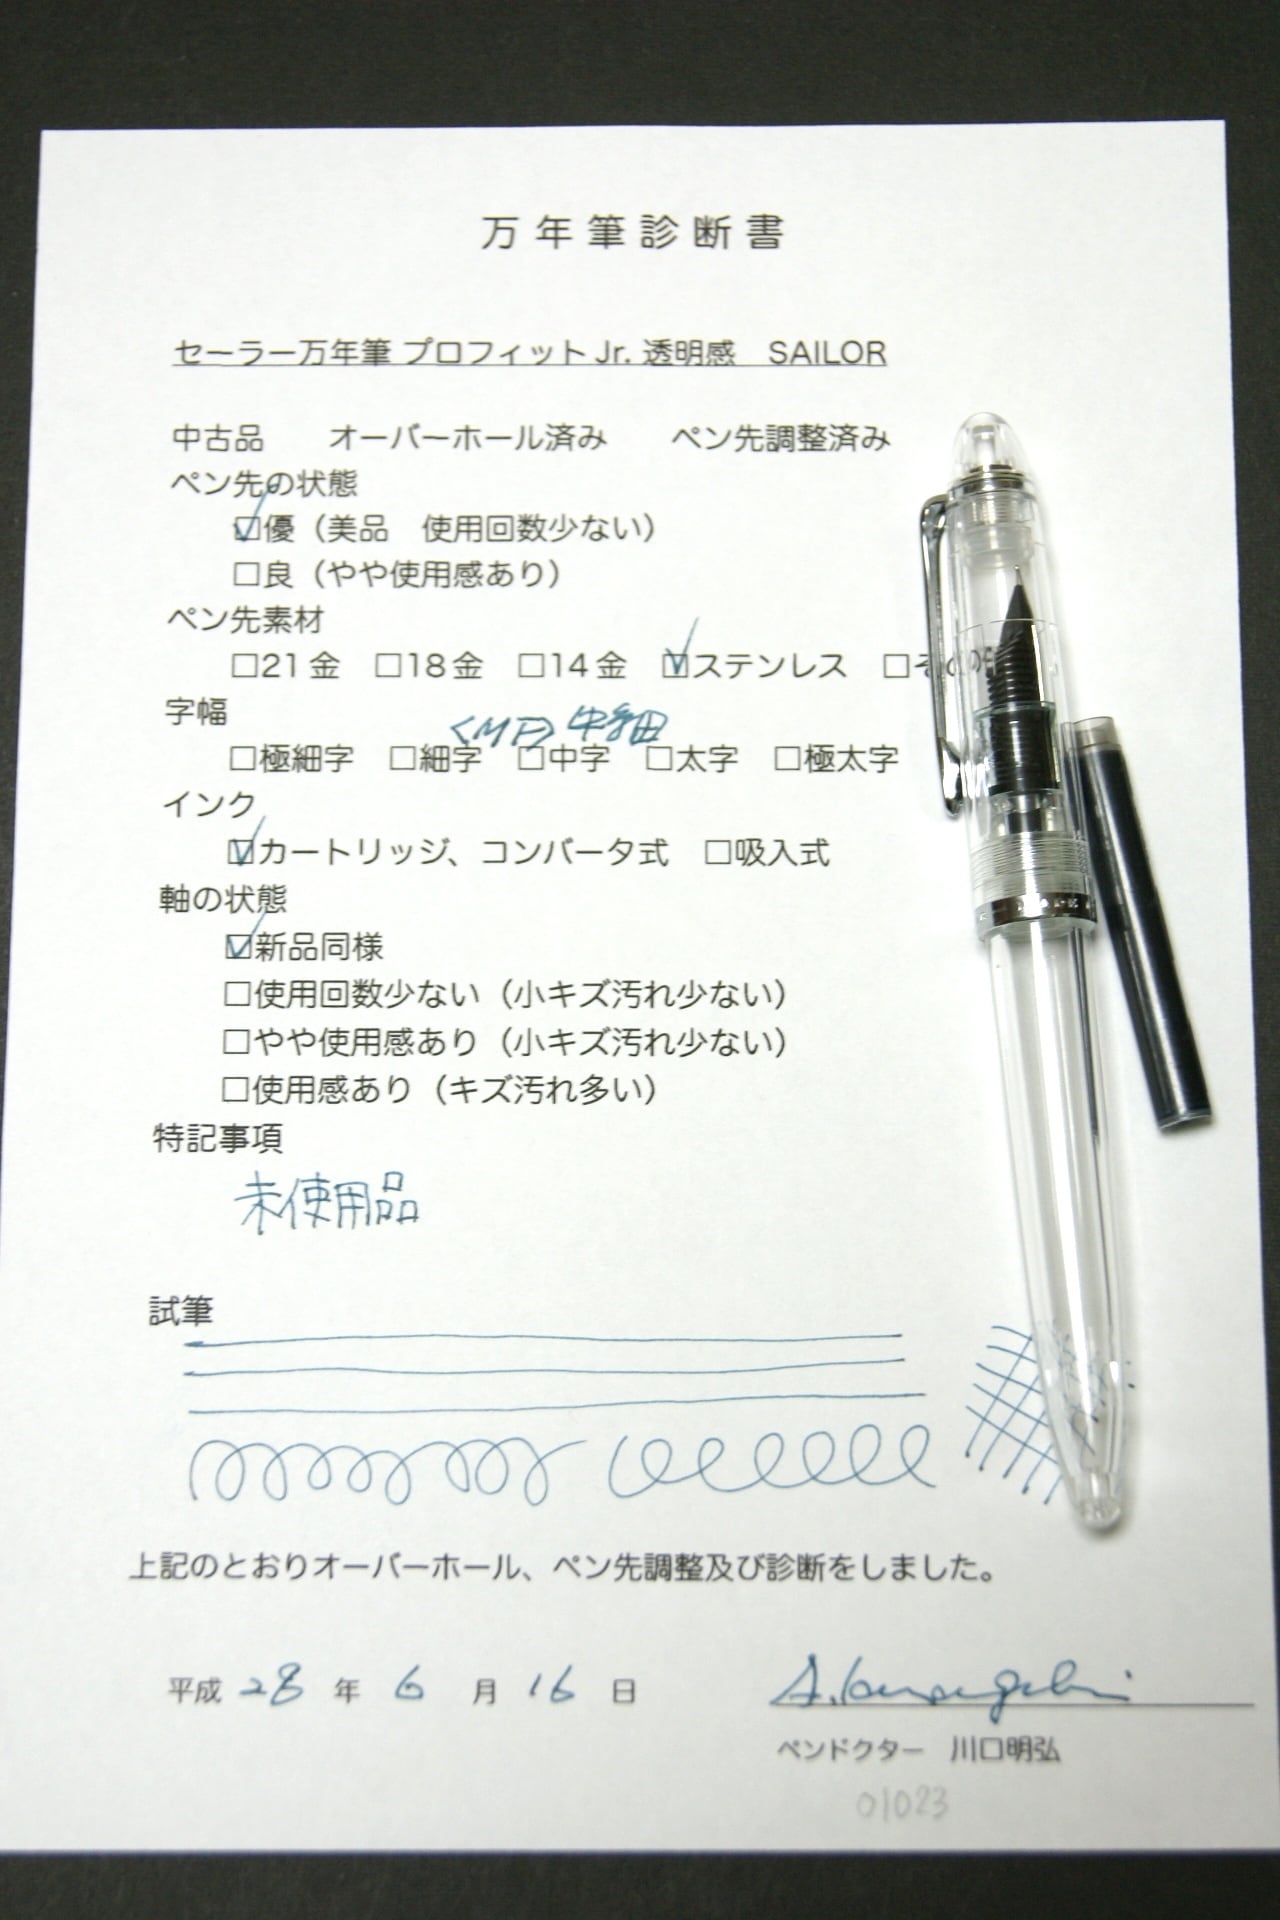 万年筆診断書
セーラー万年筆 プロフィット Jr. 透明感　SAILOR
中古品　　オーバーホール済み　　ペン先調整済み
ペン先の状態
☑優（美品　使用回数少ない）
□良（やや使用感あり）
ペン先素材
□21金　□18金　□14金　☑ステンレス　□その
字幅
<MF> 中細
□極細字　□細字　□中字　□太字　□極太字
インク
☑カートリッジ、コンバータ式　□吸入式
軸の状態
☑新品同様
□使用回数少ない（小キズ汚れ少ない）
□やや使用感あり（小キズ汚れ少ない）
□使用感あり（キズ汚れ多い）
特記事項
未使用品
試筆
上記のとおりオーバーホール、ペン先調整及び診断をしました。
平成 28 年 6 月 16 日
ペンドクター　川口明弘
01023